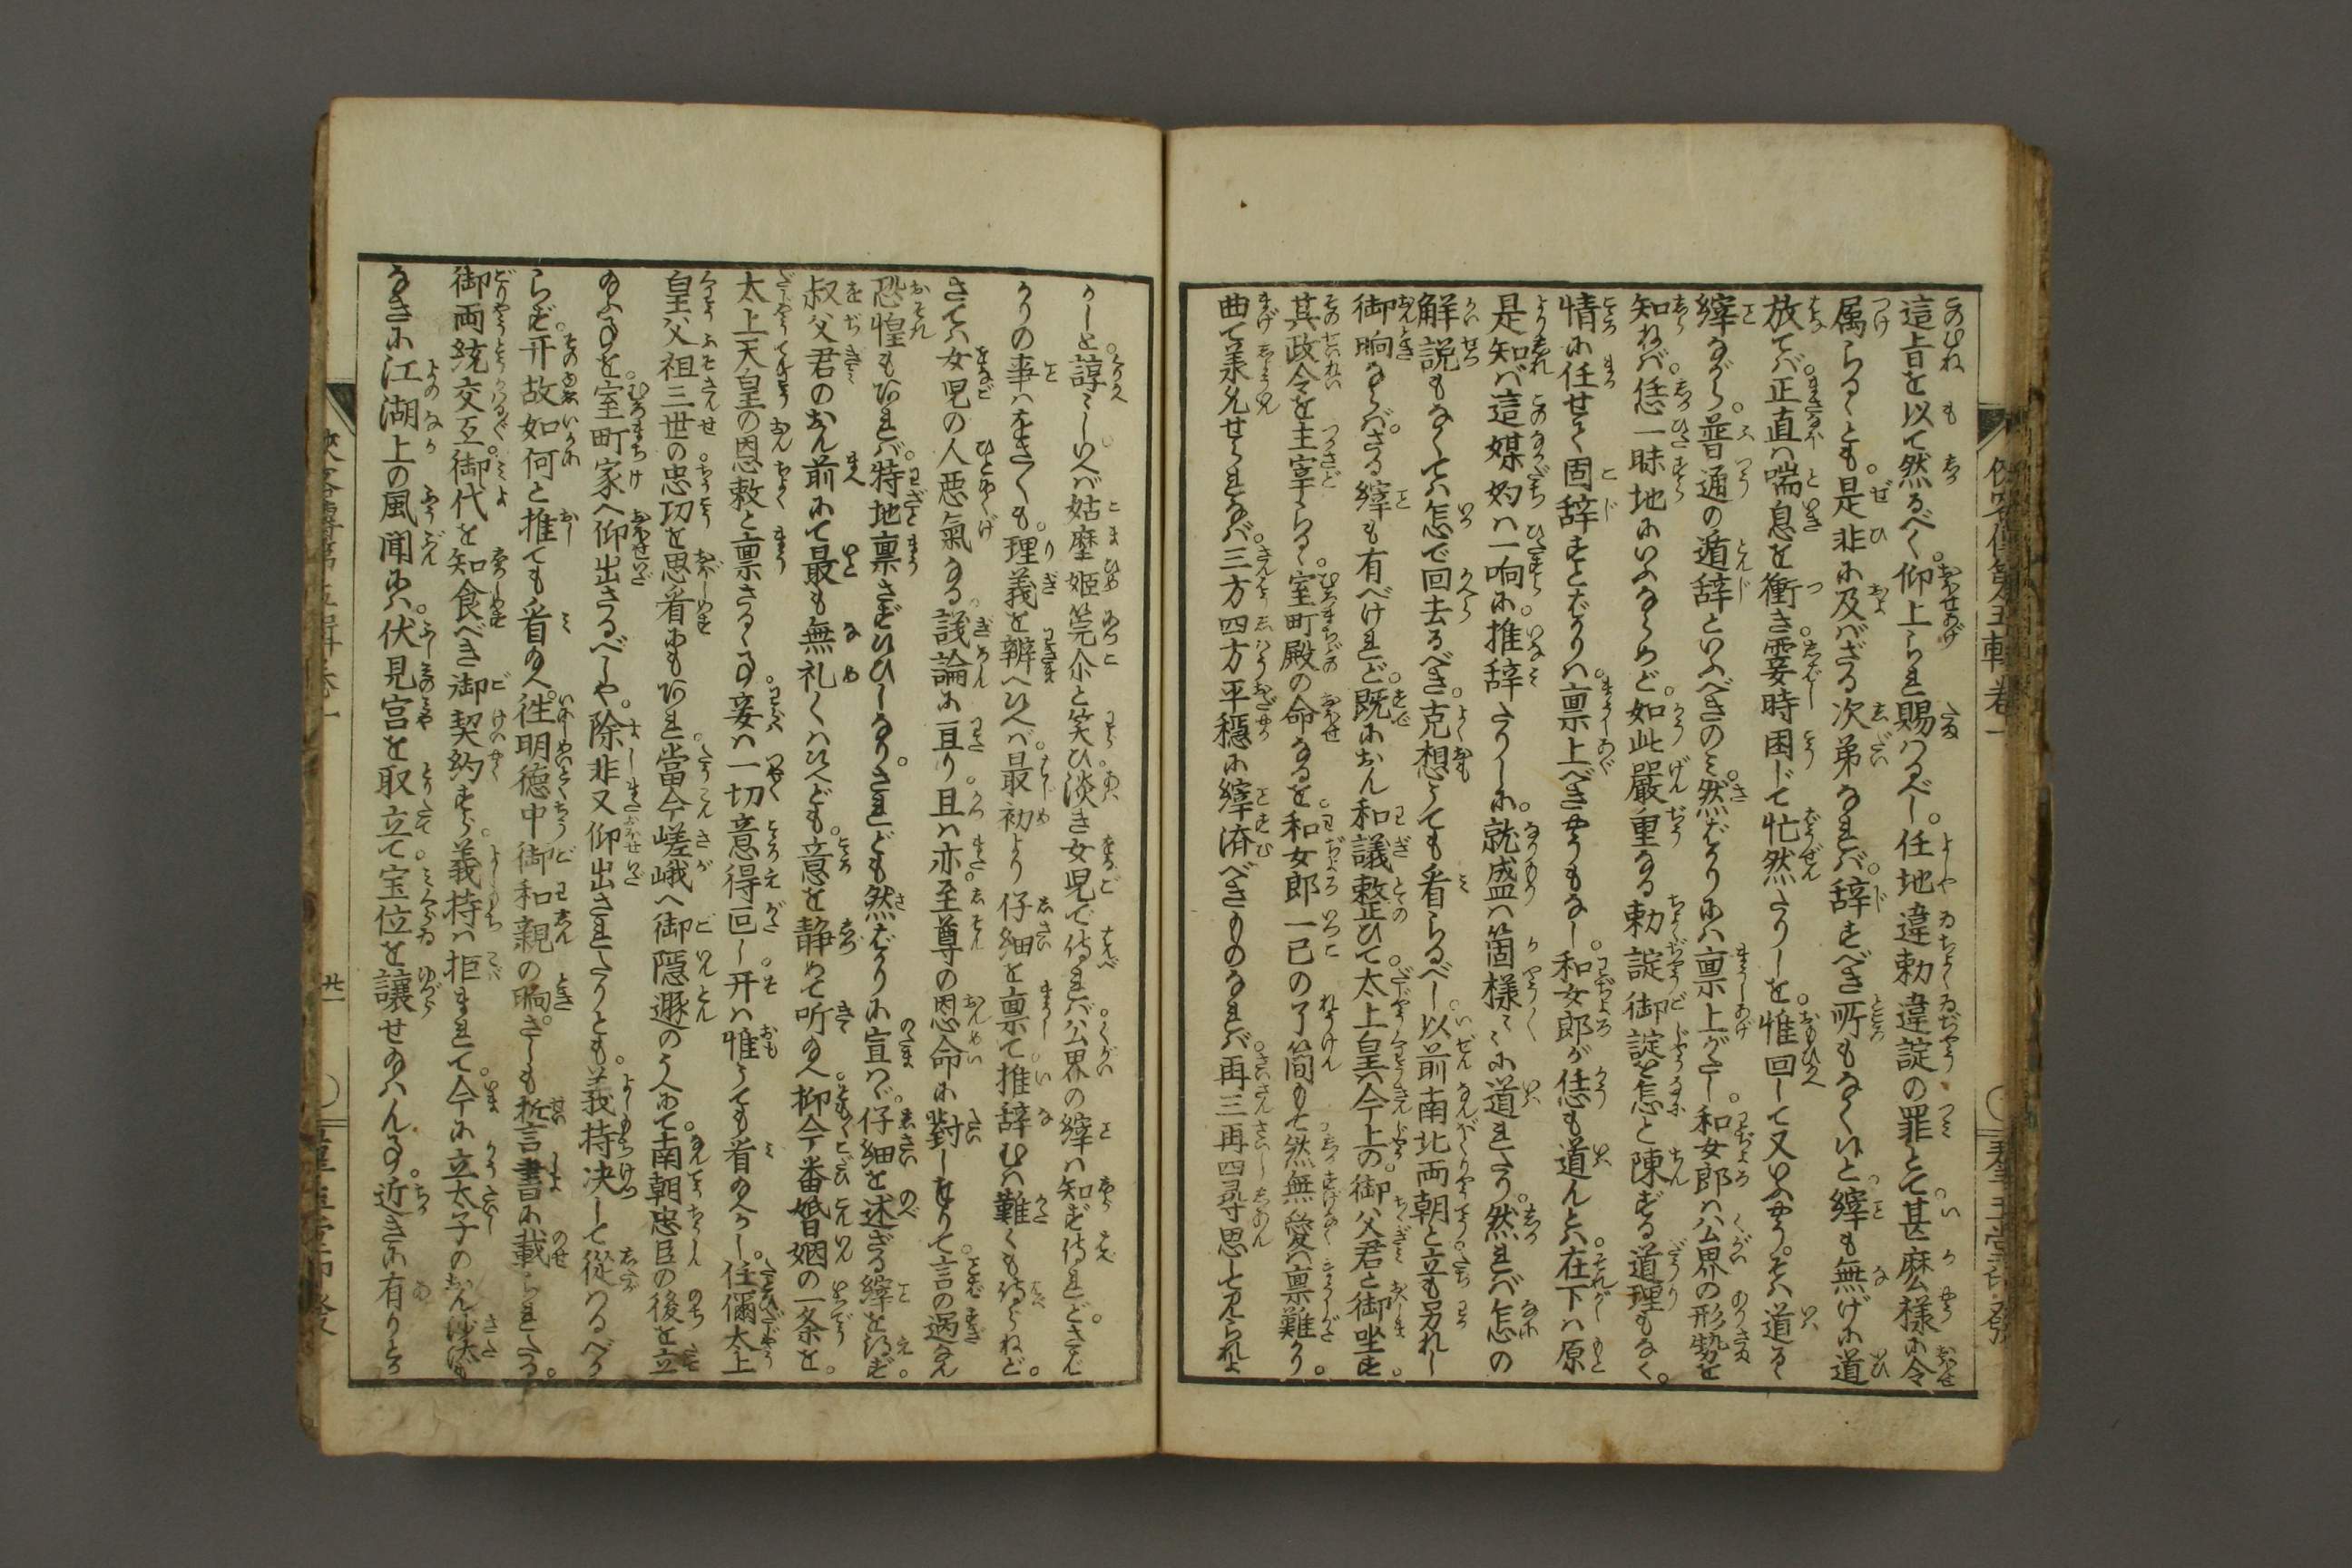 這旨を以て然るべく。仰上られ賜はるべし。任地違勅違諚の罪とて。甚麼様に令
属らるゝとも。是非に及ばざる次第なれば。辞すべき所もなくいと。縡も無げに道
放てば。正直は喘息を衝き。霎時困じて忙然たりしを。惟回して又いふやう。そは道るゝ
縡ながら。普通の遁辞といふべきのみ。然ばかりにては稟上がたし。和女郎は公界の形勢を
知ねば。恁一昧地にいふならめど。如此嚴重なる勅諚御諚を。怎と陳ずる道理もなく。
情に任せて固辞すとばかりは。稟上べきやうもなし。和女郎が恁も道んとは。在下は原
是知ば這媒妁は一向に推辞たりしに。就盛は箇様々々に道れたり。然れば怎の
解説もなくては怎で回去るべき。克想ふても看らるべし。以前南北両朝と立も另れし
御晌ならば。さる縡も有べけれど。既におん和議整ひて。太上皇は今上の。御父君と御坐す。
其政令を主宰らるゝ。室町殿の命なるを。和女郎一己の了簡もて然無愛は稟難かり。
曲て承允せられなば。三方四方平穏に縡済べきものなれば。再三再四尋思して見られよ
かしと。諄々しくいへば姑摩姫莞尓と笑ひ。淡き女児で侍れば。公界の縡は知ず侍れど。さば
かりの事はをさ〳〵も。理義を辨へいへば。最初より仔細を稟て推辞むは難くも侍らねど。
さては女児の人悪氣なる。議論に亘り。且は亦。至尊の恩命に對しまゐりて。言の過なん
恐惶もあれば。特地稟さずひひしなり。されども然ばかりに宣はゞ。仔細を述ざる縡を得ず。
叔父君のおん前にて最も無礼くはいへども。意を静めて听給へ。抑今番婚姻の一条を。
太上天皇の恩敕と稟さるゝ事。妾は一切意得叵し。开は惟ふても看給へかし。任儞太上
皇父祖三世の忠功を思看すにもあれ。當今嵯峨へ御隠遯のうへにて。南朝忠臣の後を立
給ふ事を。室町家へ仰出さるべしや。除非又仰出されたりとも。義持决しと從はるべか
らず。开故如何と推ても看給へ。徃明徳中御和親の晌。さしも誓言書に載られたる。
御両統交互。御代を知食べき御契約すら。義持は拒まれて。今に立太子のおん沙汰も
なきに江湖上の風聞には。伏見宮を取立て。宝位を讓せ給はん事。近きに有りとか